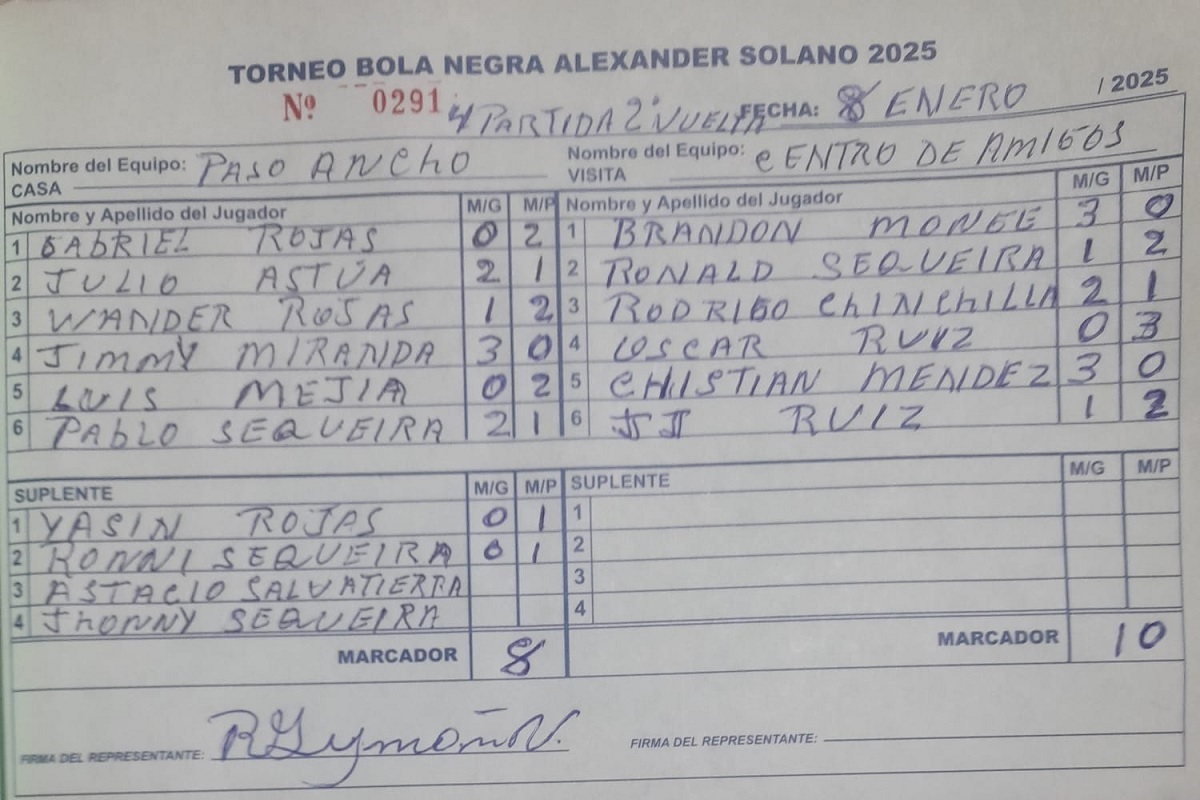 TORNEO BOLA NEGRA ALEXANDER SOLANO 2025
Nº 0291 4 PARTIDA 2ª VUELTA FECHA: 8 ENERO / 2025
Nombre del Equipo: PASO ANCHO Nombre del Equipo: CENTRO DE AMIGOS
CASA VISITA
Nombre y Apellido del Jugador M/G M/P Nombre y Apellido del Jugador M/G M/P
1 GABRIEL ROJAS 0 2 1 BRANDON MONGE 3 0
2 JULIO ASTÚA 2 1 2 RONALD SEQUEIRA 1 2
3 WANDER ROJAS 1 2 3 RODRIGO CHINCHILLA 2 1
4 JIMMY MIRANDA 3 0 4 OSCAR RUIZ 0 3
5 LUIS MEJIA 0 2 5 CHISTIAN MENDEZ 3 0
6 PABLO SEQUEIRA 2 1 6 JJ RUIZ 1 2
SUPLENTE M/G M/P SUPLENTE M/G M/P
1 YASIN ROJAS 0 1 1
2 RONNI SEQUEIRA 0 1 2
3 ASTACIO SALVATIERRA 3
4 JHONNY SEQUEIRA 4
MARCADOR 8 MARCADOR 10
FIRMA DEL REPRESENTANTE: FIRMA DEL REPRESENTANTE: